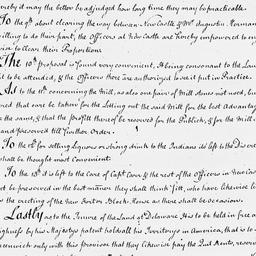 hereby it may the better be adjudged how long time they may be practicable.
To the 9th about clearing the way between New Castle & Mr Augustin Herman
willing to do their part, the Officers at New Castle are hereby impowered to
to clear their Proportion
The 10th proposall is found very convenient, It being consonant to the Law
it to be attended, & the Officers there are authorized to see it put in Practice.
As to the 11th concerning the Mill, as also one pair of Mill stones not used, but
ordered that care be taken for the Letting out the said Mill for the best Advantage
the same, & that the profitt thereof be reserved for the Publick, & for the Mill
and preserved till further Order.
To the 12th for selling Liquors or strong drink to the Indians its left to the Discre
shall be thought most Convenient.
To the 13th its left to the care of Capt Carr & the rest of the Officers in New Cas
be preserved in the best manner they shall think fitt, who have likewise
the erecting of the New Fort or Block House as there shall be occasion.
Lastly as to the Tenure of the Land at Delaware it is to be held in free
Highness by his Majestys patent holds all his Territorys in America, that is to
Greenwich only with this proviso that they likewise pay the Quit Rents, reserv